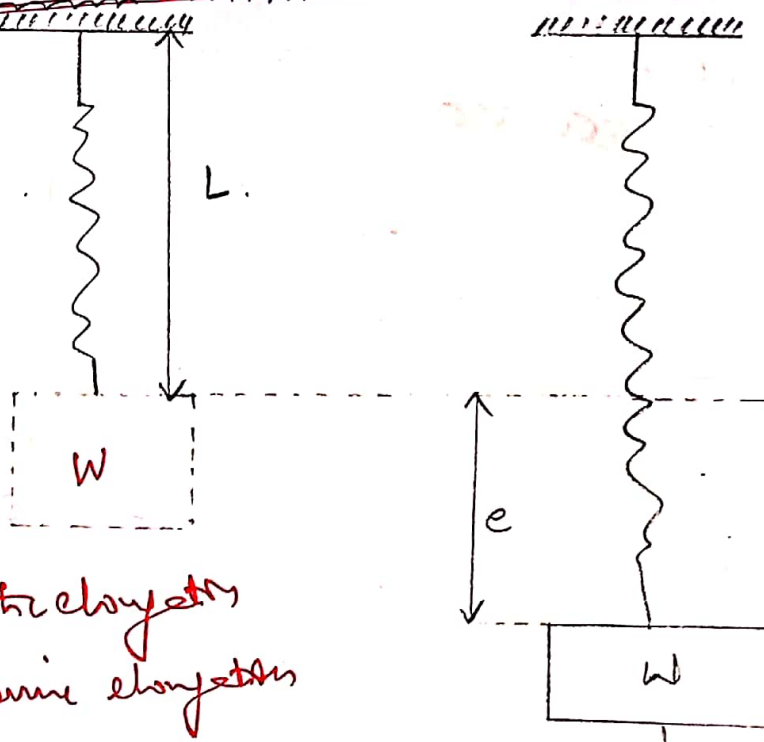 L.
W
e
elongation
elongation
W